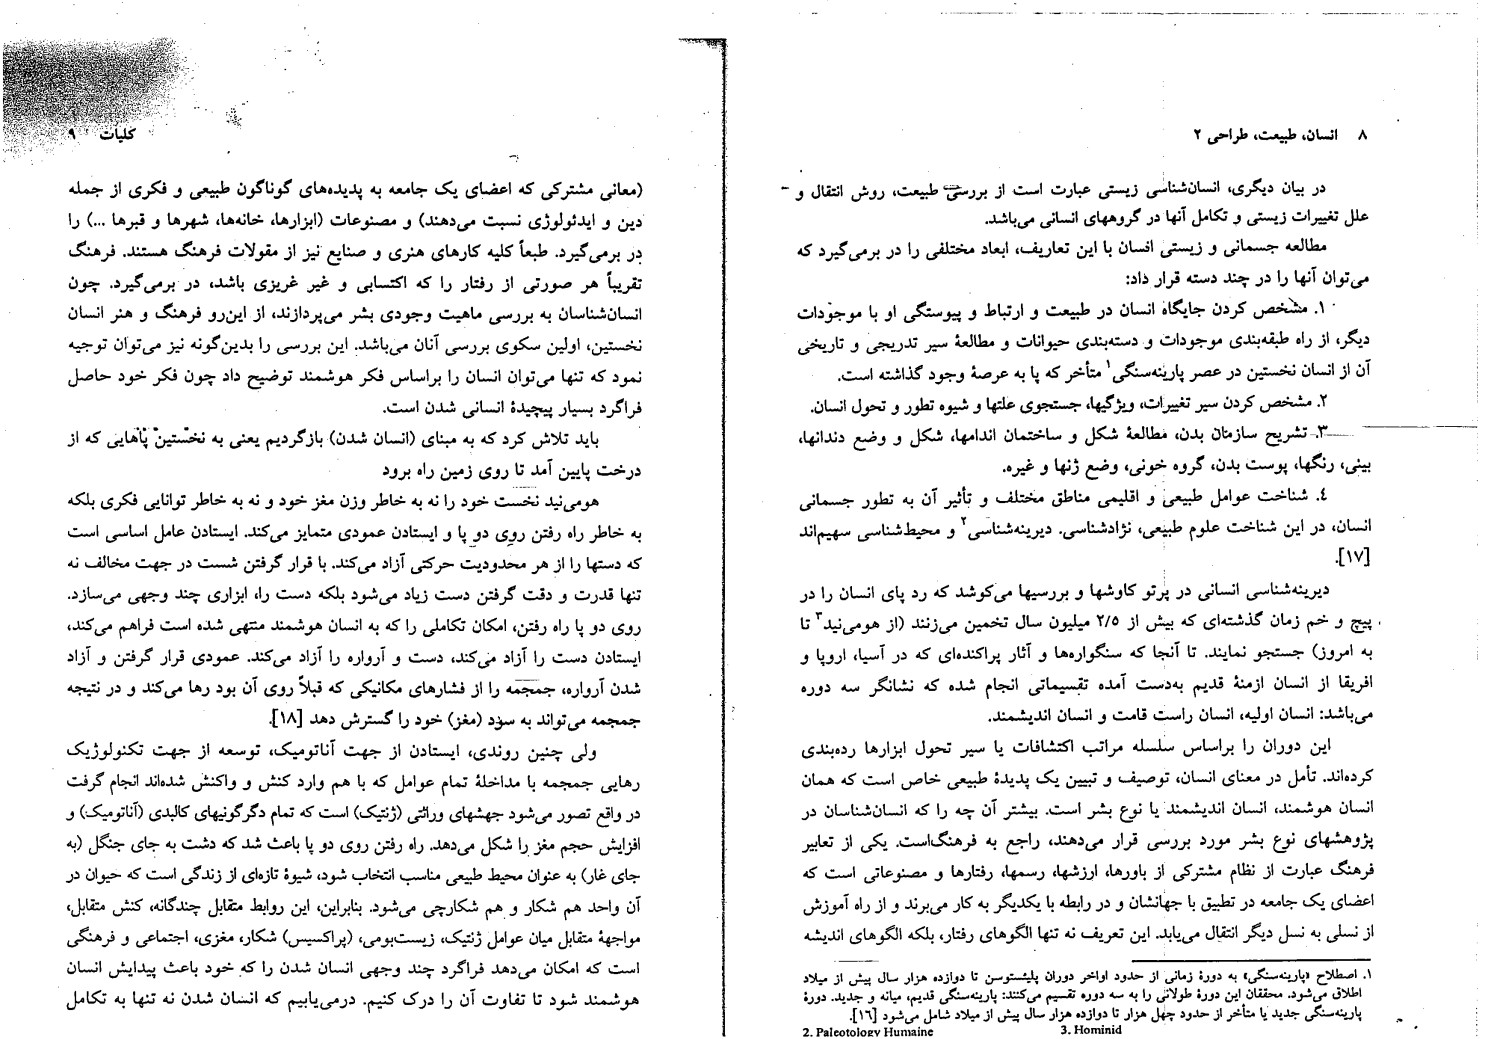 ۸ انسان، طبیعت، طراحی ۲
در بیان دیگری، انسان‌شناسی زیستی عبارت است از بررسی طبیعت، روش انتقال و
علل تغییرات زیستی و تکامل آنها در گروههای انسانی می‌باشد.
مطالعه جسمانی و زیستی انسان با این تعاریف، ابعاد مختلفی را در برمی‌گیرد که
می‌توان آنها را در چند دسته قرار داد:
۱. مشخص کردن جایگاه انسان در طبیعت و ارتباط و پیوستگی او با موجودات
دیگر، از راه طبقه‌بندی موجودات و دسته‌بندی حیوانات و مطالعهٔ سیر تدریجی و تاریخی
آن از انسان نخستین در عصر پارینه‌سنگی۱ متأخر که پا به عرصهٔ وجود گذاشته است.
۲. مشخص کردن سیر تغییرات، ویژگیها، جستجوی علتها و شیوه تطور و تحول انسان.
۳. تشریح سازمان بدن، مطالعهٔ شکل و ساختمان اندامها، شکل و وضع دندانها،
بینی، رنگها، پوست بدن، گروه خونی، وضع ژنها و غیره.
٤. شناخت عوامل طبیعی و اقلیمی مناطق مختلف و تأثیر آن به تطور جسمانی
انسان، در این شناخت علوم طبیعی، نژادشناسی. دیرینه‌شناسی۲ و محیط‌شناسی سهیم‌اند
[۱۷].
دیرینه‌شناسی انسانی در پرتو کاوشها و بررسیها می‌کوشد که رد پای انسان را در
پیچ و خم زمان گذشته‌ای که بیش از ۲/۵ میلیون سال تخمین می‌زنند (از هومی‌نید۳ تا
به امروز) جستجو نمایند. تا آنجا که سنگواره‌ها و آثار پراکنده‌ای که در آسیا، اروپا و
افریقا از انسان ازمنهٔ قدیم به‌دست آمده تقسیماتی انجام شده که نشانگر سه دوره
می‌باشد: انسان اولیه، انسان راست قامت و انسان اندیشمند.
این دوران را براساس سلسله مراتب اکتشافات یا سیر تحول ابزارها رده‌بندی
کرده‌اند. تأمل در معنای انسان، توصیف و تبیین یک پدیدهٔ طبیعی خاص است که همان
انسان هوشمند، انسان اندیشمند یا نوع بشر است. بیشتر آن چه را که انسان‌شناسان در
پژوهشهای نوع بشر مورد بررسی قرار می‌دهند، راجع به فرهنگ‌است. یکی از تعابیر
فرهنگ عبارت از نظام مشترکی از باورها، ارزشها، رسمها، رفتارها و مصنوعاتی است که
اعضای یک جامعه در تطبیق با جهانشان و در رابطه با یکدیگر به کار می‌برند و از راه آموزش
از نسلی به نسل دیگر انتقال می‌یابد. این تعریف نه تنها الگوهای رفتار، بلکه الگوهای اندیشه
۱. اصطلاح «پارینه‌سنگی» به دورهٔ زمانی از حدود اواخر دوران پلیئستوسن تا دوازده هزار سال پیش از میلاد
اطلاق می‌شود. محققان این دورهٔ طولانی را به سه دوره تقسیم می‌کنند: پارینه‌سنگی قدیم، میانه و جدید. دورهٔ
پارینه‌سنگی جدید یا متأخر از حدود چهل هزار تا دوازده هزار سال پیش از میلاد شامل می‌شود [۱٦].
2. Paleotology Humaine 3. Hominid
کلیات ۹
(معانی مشترکی که اعضای یک جامعه به پدیده‌های گوناگون طبیعی و فکری از جمله
دین و ایدئولوژی نسبت می‌دهند) و مصنوعات (ابزارها، خانه‌ها، شهرها و قبرها ...) را
در برمی‌گیرد. طبعاً کلیه کارهای هنری و صنایع نیز از مقولات فرهنگ هستند. فرهنگ
تقریباً هر صورتی از رفتار را که اکتسابی و غیر غریزی باشد، در برمی‌گیرد. چون
انسان‌شناسان به بررسی ماهیت وجودی بشر می‌پردازند، از این‌رو فرهنگ و هنر انسان
نخستین، اولین سکوی بررسی آنان می‌باشد. این بررسی را بدین‌گونه نیز می‌توان توجیه
نمود که تنها می‌توان انسان را براساس فکر هوشمند توضیح داد چون فکر خود حاصل
فراگرد بسیار پیچیدهٔ انسانی شدن است.
باید تلاش کرد که به مبنای (انسان شدن) بازگردیم یعنی به نخستین پاهایی که از
درخت پایین آمد تا روی زمین راه برود
هومی‌نید نخست خود را نه به خاطر وزن مغز خود و نه به خاطر توانایی فکری بلکه
به خاطر راه رفتن روی دو پا و ایستادن عمودی متمایز می‌کند. ایستادن عامل اساسی است
که دستها را از هر محدودیت حرکتی آزاد می‌کند. با قرار گرفتن شست در جهت مخالف نه
تنها قدرت و دقت گرفتن دست زیاد می‌شود بلکه دست را، ابزاری چند وجهی می‌سازد.
روی دو پا راه رفتن، امکان تکاملی را که به انسان هوشمند منتهی شده است فراهم می‌کند،
ایستادن دست را آزاد می‌کند، دست و آرواره را آزاد می‌کند. عمودی قرار گرفتن و آزاد
شدن آرواره، جمجمه را از فشارهای مکانیکی که قبلاً روی آن بود رها می‌کند و در نتیجه
جمجمه می‌تواند به سود (مغز) خود را گسترش دهد [۱۸].
ولی چنین روندی، ایستادن از جهت آناتومیک، توسعه از جهت تکنولوژیک
رهایی جمجمه با مداخلهٔ تمام عوامل که با هم وارد کنش و واکنش شده‌اند انجام گرفت
در واقع تصور می‌شود جهشهای وراثتی (ژنتیک) است که تمام دگرگونیهای کالبدی (آناتومیک) و
افزایش حجم مغز را شکل می‌دهد. راه رفتن روی دو پا باعث شد که دشت به جای جنگل (به
جای غار) به عنوان محیط طبیعی مناسب انتخاب شود، شیوهٔ تازه‌ای از زندگی است که حیوان در
آن واحد هم شکار و هم شکارچی می‌شود. بنابراین، این روابط متقابل چندگانه، کنش متقابل،
مواجههٔ متقابل میان عوامل ژنتیک، زیست‌بومی، (پراکسیس) شکار، مغزی، اجتماعی و فرهنگی
است که امکان می‌دهد فراگرد چند وجهی انسان شدن را که خود باعث پیدایش انسان
هوشمند شود تا تفاوت آن را درک کنیم. درمی‌یابیم که انسان شدن نه تنها به تکامل